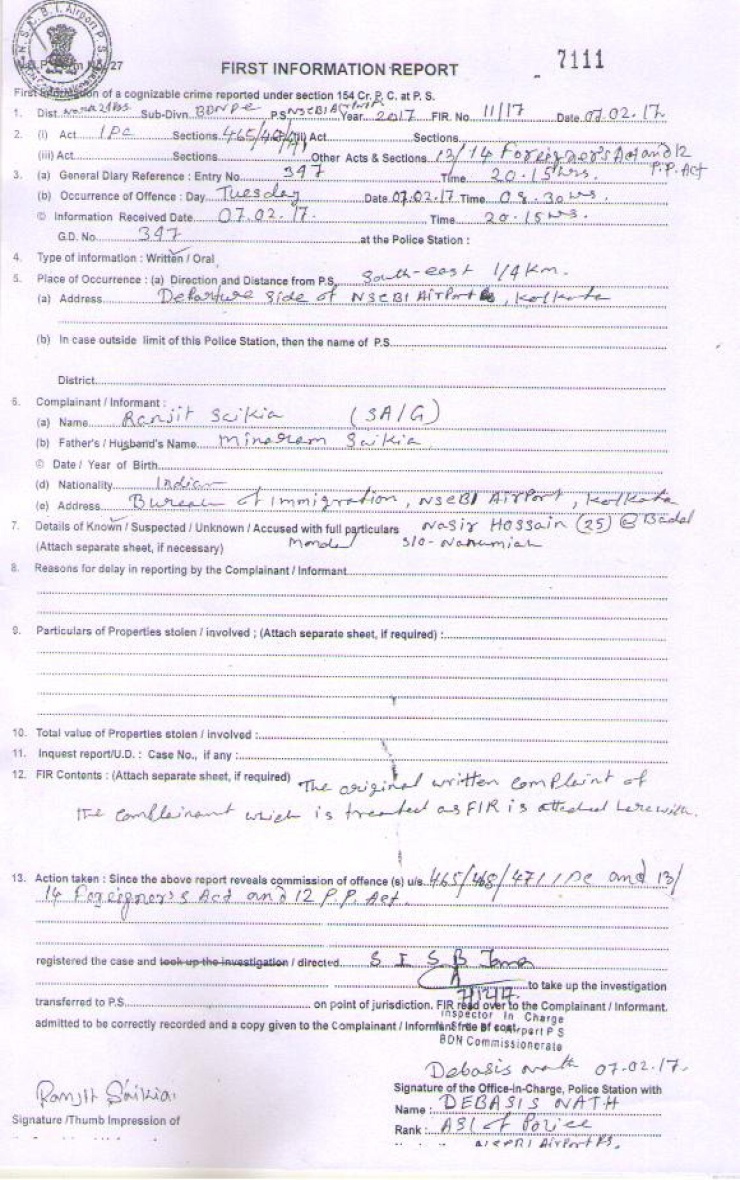 N.S.C.B.I. Airport P.S.
FIRST INFORMATION REPORT
7111
First Information of a cognizable crime reported under section 154 Cr. P. C. at P. S.
1. Dist. Sub-Divn. BDNPC P.S. NSCBI Airport Year 2017 FIR No. 11/17 Date 07.02.17
2. (i) Act IPC Sections 465/468/471 (ii) Act Sections
(iii) Act Sections Other Acts & Sections 13/14 Foreigner's Act and 12 P.P. Act
3. (a) General Diary Reference : Entry No. 347 Time 20.15 hrs.
(b) Occurrence of Offence : Day Tuesday Date 07.02.17 Time 08.30 hrs.
© Information Received Date 07.02.17. Time 20.15 hrs.
G.D. No. 347 at the Police Station :
4. Type of information : Written / Oral
5. Place of Occurrence : (a) Direction and Distance from P.S. South-east 1/4 km.
(a) Address Departure side of NSCBI Airport, Kolkata
(b) In case outside limit of this Police Station, then the name of P.S.
District
6. Complainant / Informant :
(a) Name Ranjit Saikia (SA/G)
(b) Father's / Husband's Name Minaram Saikia
© Date / Year of Birth
(d) Nationality Indian
(e) Address Bureau of Immigration, NSCBI Airport, Kolkata
7. Details of Known / Suspected / Unknown / Accused with full particulars Nasir Hossain (25) @ Badal
(Attach separate sheet, if necessary) Mondal S/O- Nanumiah
8. Reasons for delay in reporting by the Complainant / Informant
9. Particulars of Properties stolen / involved ; (Attach separate sheet, if required) :
10. Total value of Properties stolen / involved :
11. Inquest report/U.D. : Case No., if any :
12. FIR Contents : (Attach separate sheet, if required) The original written complaint of
the complainant which is treated as FIR is attached herewith.
13. Action taken : Since the above report reveals commission of offence (s) u/s. 465/468/471 IPC and 13/
14 Foreigner's Act and 12 P.P. Act.
registered the case and took up the investigation / directed S I S B Jana
to take up the investigation
7/2/17
transferred to P.S. on point of jurisdiction. FIR read over to the Complainant / Informant.
Inspector In Charge
admitted to be correctly recorded and a copy given to the Complainant / Informant free of cost.
Airport P S
BDN Commissionerate
Debasis Nath 07.02.17.
Ranjit Saikia
Signature of the Office-in-Charge, Police Station with
Signature /Thumb Impression of
Name : DEBASIS NATH
Rank : ASI of Police
NSCBI Airport P.S.